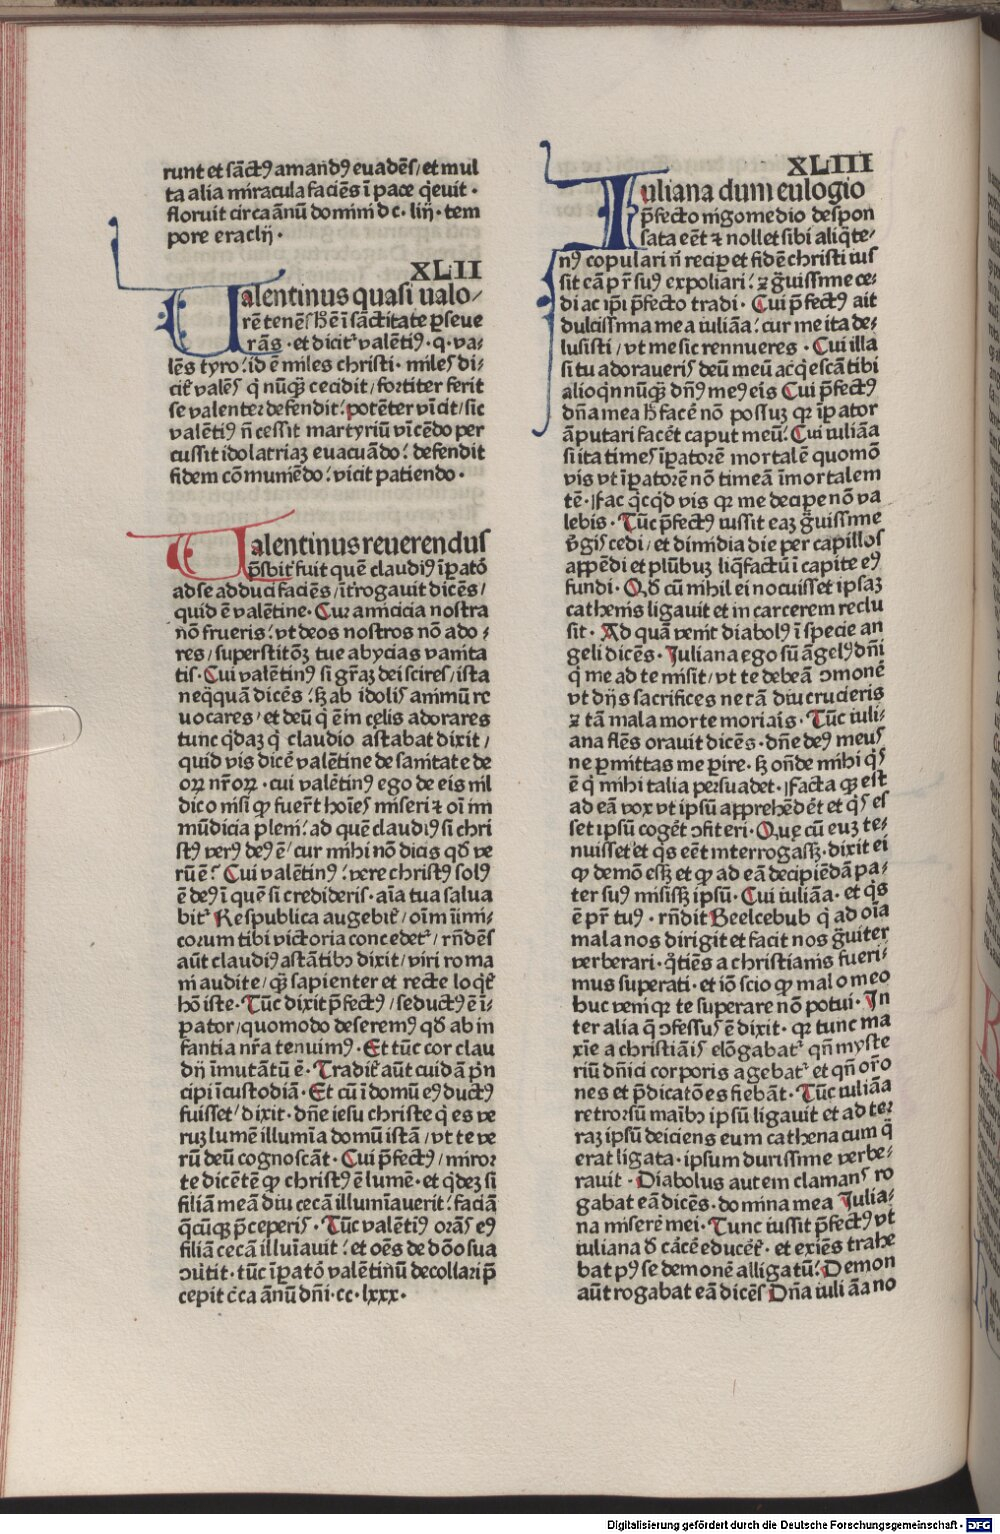 runt et sāctꝰ amandꝰ euadēs/ et mul
ta alia miracula faciēs ī pace q̇euit ·
floruit circa ānū domini dc· liij· tem
pore eraclij ·
XLII
Valentinus quasi ualo/
rē tenēs h̄ ē ī sāctitate ꝑseue
rās · et dicit᷑ valētiꝰ · q· va⸗
lēs tyro⸵ id ē miles christi · miles di⸗
cit᷑ valēs q̇ nūqꝫ cecidit/ fortiter ferit
se valenter defendit⸵ potēter vīcit/ sic
valētiꝰ n̄ cessit martyriū vīcēdo per
cussit idolatriaꝫ euacuādo⸵ defendit
fidem cōmuniēdo⸵ vicit patiendo ·
Valentinus reuerendus
p̄sbit᷑ fuit quē claudiꝰ īꝑatō
ad se adduci faciēs/ īt᷑rogauit dicēs/
quid ē valētine · Cur amicicia nostra
nō frueris⸵ vt deos nostros nō ado⸗
res/ superstitōꝫ tue abycias vanita
tis· Cui valētinꝰ si gr̄aꝫ dei scires/ ista
neq̄quā dicēs⸵ sꝫ ab idolis animū re
uocares/ et deū q̇ ē in celis adorares
tunc q̇daꝫ q̇ claudio astabat dixit/
quid vis dicē valētine de sanitate de
oꝝ nr̄oꝝ · cui valētinꝰ ego de eis nil
dico nisi ꝙ fuer̄t hoīes miseri ⁊ oī im
mūdicia pleni⸵ ad quē claudiꝰ si chri
stꝰ verꝰ deꝰ ē/ cur mihi nō dicis qd̄ ve
rū ē⸵ Cui valētinꝰ⸵ vere christꝰ solꝰ
ē deꝰ ī quē si credideris· aīa tua salua
bit᷑ Respublica augebit᷑/ oīm īimi⸗
corum tibi victoria concedet᷑/ rn̄dēs
aūt claudiꝰ astātibꝫ dixit/ viri roma
ni audite/ qꝫ sapienter et recte loq̇t᷑
hō iste· Tūc dixit p̄fectꝰ/ seductꝰ ē ī⸗
ꝑator/ quomodo deseremꝰ qd̄ ab in
fantia nr̄a tenuimꝰ· Et tūc cor clau
dij īmutātū ē · Tradit᷑ aūt cuidā p̄n
cipi ī custodiā· Et cū ī domū eꝰ ductꝰ
fuisset/ dixit· dn̄e iesu christe q̇ es ve
ruꝫ lumē illumīa domū istā/ vt te ve
rū deū cognoscāt · Cui p̄fectꝰ/ miror
te dicētē ꝙ christꝰ ē lumē · et q̇deꝫ si
filiā meā diu cecā illumīauerit⸵ faciā
q̄cūqꝫ p̄ceperis · Tūc valētiꝰ orās eꝰ
filiā cecā illuīauit⸵ et oēs de dōo sua
ↄu̇tit· tūc īꝑatō valētinū decollari p̄
cepit c̄ca ānū dn̄i·cc·lxxx·
XLIII
Iuliana dum eulogio
p̄fecto nigomedio despon
sata eēt ⁊ nollet sibi aliq̇te⸗
nꝰ copulari n̄ reciꝑet fidē christi ius
sit eā pr̄ suꝰ expoliari⸵ ⁊ g̃uissime ce⸗
di ac ip̄i p̄fecto tradi· Cui p̄fectꝰ ait
dulcissima mea iuliāa⸵ cur me ita de⸗
lusisti/ vt me sic rennueres · Cui illa
si tu adoraueris deū meū acq̇escā tibi
alioqn̄ nūqꝫ dn̄ꝰ meꝰ eis Cui p̄fectꝰ
dn̄a mea h̄ facē nō possuꝫ qꝛ īꝑator
āputari facēt caput meū⸵ Cui iuliāa
si ita times īꝑatorē mortalē quomō
vis vt īꝑatorē nō timeā īmortalem
tē· Fac q̇cq̇d vis qꝛ me deciꝑe nō va
lebis· Tūc p̄fectꝰ iussit eaꝫ g̃uissime
v̄gis cedi/ et dimidia die per capillos
appēdi et plūbuꝫ liq̄factū ī capite eꝰ
fundi· Qd̄ cū nihil ei nocuisset ipsaꝫ
cathenis ligauit et in carcerem reclu
sit· Ad quā venit diabolꝰ ī specie an
geli dicēs· Juliana ego sū āgelꝰ dn̄i
q̇ me ad te misit/ vt te debeā ↄmonē
vt dijs sacrifices ne tā diu crucieris
⁊ tā mala morte moriaris· Tūc iuli⸗
ana flēs orauit dicēs· dn̄e deꝰ meus
ne ꝑmittas me ꝑire· sꝫ on̄de mihi q̇s
ē q̇ mihi talia persuadet· Facta qꝫ est
ad eā vox vt ipsū apprehēdēt et q̇s es
set ipsū cogēt ↄfiteri· Que cū euꝫ te⸗
nuisset et q̇s eēt interrogassꝫ· dixit ei
ꝙ demō essꝫ et ꝙ ad eā decipiēdā pa⸗
ter suꝰ misissꝫ ipsū· Cui iuliāa· et q̇s
ē pr̄ tuꝰ· rn̄dit Beelcebub q̇ ad oīa
mala nos dirigit et facit nos g̃uiter
verberari· q̇tiēs a christianis fueri⸗
mus superati· et iō scio ꝙ malo meo
huc veni qꝛ te superare nō potui· In
ter alia q̄ ↄfessus ē dixit· qꝛ tunc ma
xīe a christiāis elōgabat᷑ qn̄ myste
riū dn̄ici corporis agebat᷑ et qn̄ or̄o
nes et p̄dicatōes fiebāt· Tūc iuliāa
retrorsū maībꝫ ipsū ligauit et ad ter
raꝫ ipsū deiciens eum cathena cum q̄
erat ligata· ipsum durissime verbe⸗
rauit · Diabolus autem clamans ro
gabat eā dicēs· domina mea Julia⸗
na miserē mei· Tunc iussit p̄fectꝰ vt
iuliana d̄ cācē educēt᷑· et exiēs trahe
bat pꝰ se demonē alligatū⸵ Demon
aūt rogabat eā dicēs Dn̄a iuliāa no
Digitalisierung gefördert durch die Deutsche Forschungsgemeinschaft - DFG